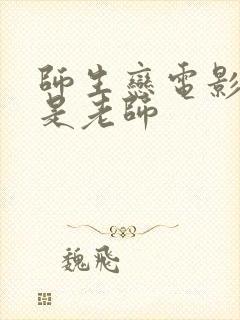 師生戀電影
是老師
魏飛